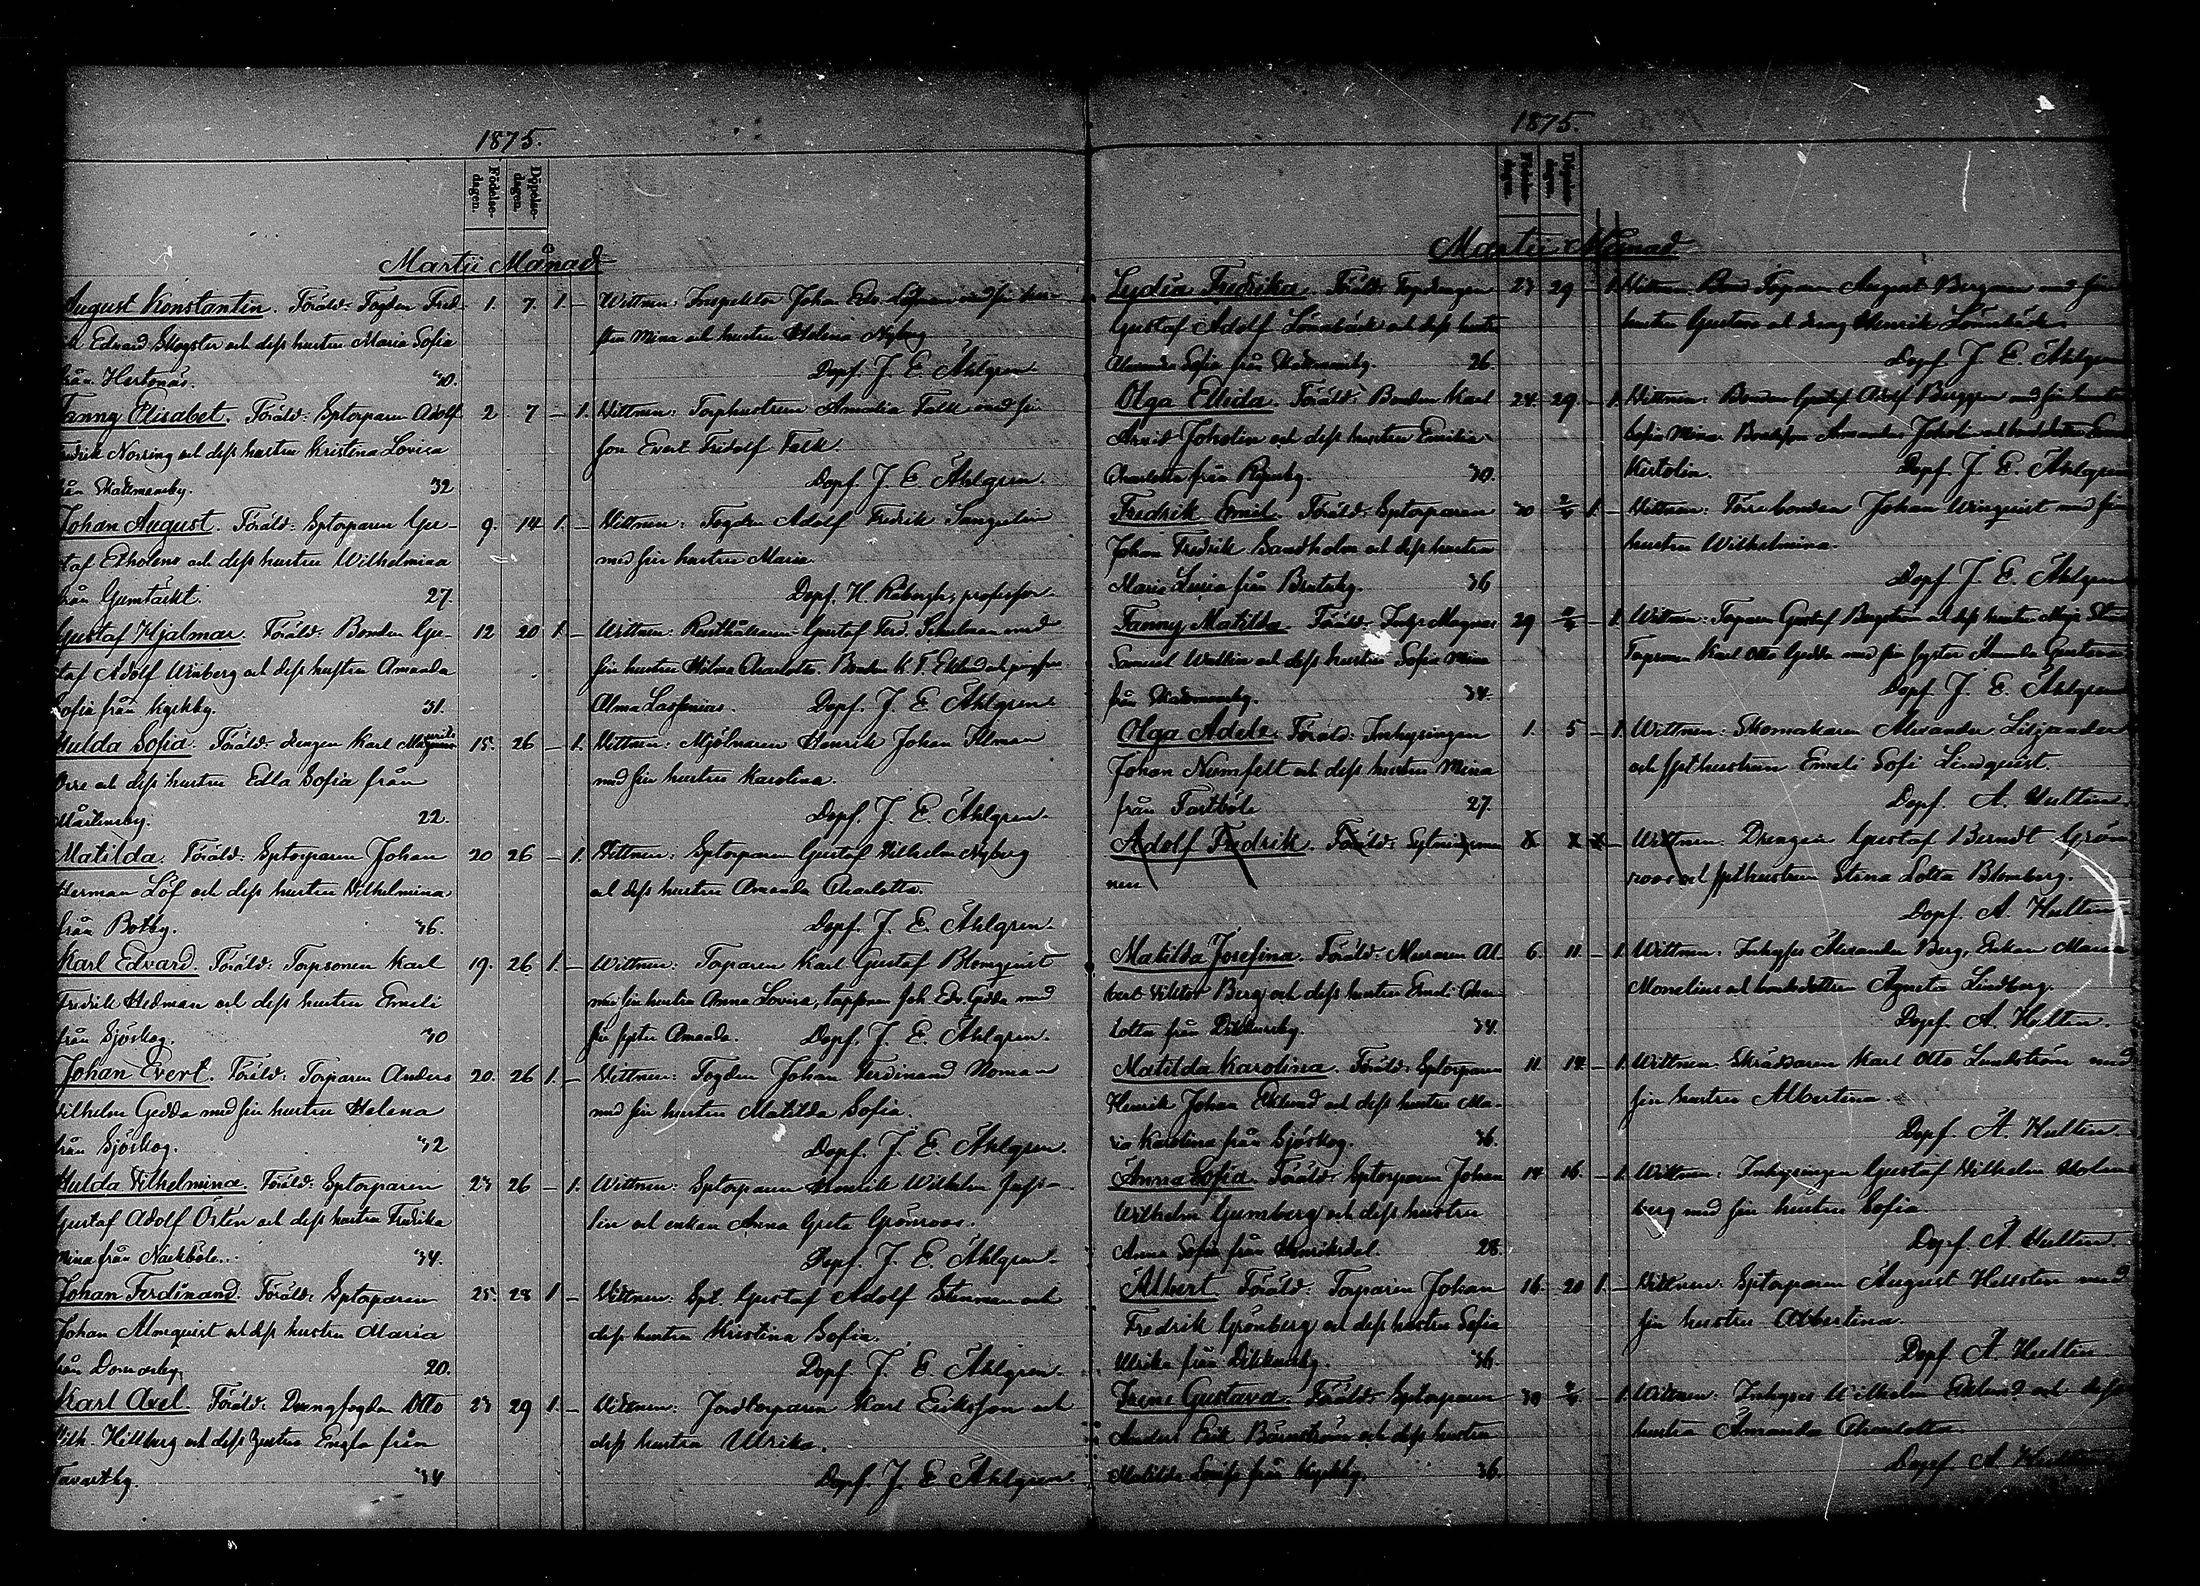 1875.
Födelse-dagen.
Döpelse-dagen.
Martii Månad
August Konstantin. Föräld: Fogden Fred- 1. 7. 1. –
Edvard Skogster och dess hustru Maria Sofia
från Hertonäs. 30.
Wittnen: Inspektor Johan Edv. Löfman med sin hu-
stru Mina och hustru Helena Nyberg
Döpf. J. E. Åhlgren.
Fanny Elisabet. Föräld: Sptorparen Adolf 2 7 – 1.
Fredrik Norring och dess hustru Kristina Lovisa
från Stadsmansby. 32
Wittnen: Torphustrun Amalia Falk med sin
son Evert Fridolf Falk.
Döpf. J. E. Åhlgren.
Johan August. Föräld: Sptorparen Gu- 9. 14 1. –
staf Etholens och dess hustru Wilhelmina
från Gumtäkt. 27.
Wittnen: Fogden Adolf Fredrik Sanngelin
med sin hustru Maria.
Döpf. H. Råbergh, professor.
Gustaf Hjalmar. Föräld: Bonden Gu- 12 20 1. –
staf Adolf Winberg och dess hustru Amanda
Sofia från Kyrkby. 31.
Wittnen: Rusthållaren Gustaf Ferd. Schulman med
sin hustru Hilma Charlotta. Bonden K. F. Eklund och
Alma Lassenius. Döpf. J. E. Åhlgren.
Hulda Sofia. Föräld: drengen Karl 15. 26 – 1.
Orre och dess hustru Edla Sofia från
Mårtensby. 22.
Wittnen: Mjölnaren Henrik Johan Tilman
med sin hustru Karolina.
Döpf. J. E. Åhlgren.
Matilda. Föräld: Sptorparen Johan 20 26 – 1.
Herman Löf och dess hustru Wilhelmina
från Botby. 36.
Wittnen: Sptorparen Gustaf Wilhelm Nyberg
och dess hustru Amanda Charlotta.
Döpf. J. E. Åhlgren.
Karl Edvard. Föräld: Torpsonen Karl 19. 26 1. –
Fredrik Hedman och dess hustru Emeli
från Sjöskog. 30
Wittnen: Torparen Karl Gustaf Blomquist
med sin hustru Anna Lovisa, torpsonen Joh. Edv. Gedda med
sin syster Amanda. Döpf. J. E. Åhlgren.
Johan Evert. Föräld: Torparen Anders 20. 26 1. –
Wilhelm Gedda med sin hustru Helena
från Sjöskog. 32
Wittnen: Fogden Johan Ferdinand Noman
med sin hustru Matilda Sofia.
Döpf. J. E. Åhlgren.
Hulda Wilhelmina. Föräld: Sptorparen 23 26 – 1.
Gustaf Adolf Östén och dess hustru Fredrika
Mina från Nackböle. 34.
Wittnen: Sptorparen Henrik Wilhelm
och enkan Anna Greta Grönroos.
Döpf. J. E. Åhlgren.
Johan Ferdinand. Föräld: Sptorparen 25. 28 1. –
Johan Almquist och dess hustru Maria
från Domarby 20.
Wittnen: Spt. Gustaf Adolf Stenman och
dess hustru Kristina Sofia.
Döpf. J. E. Åhlgren.
Karl Axel. Föräld: Drengfogden Otto 23 29 1. –
Wilh. Hillberg och dess hustru Engla från
Tavastby. 34
Wittnen: Jordtorparen Karl Eriksson och
dess hustru Ulrika.
Döpf. J. E. Åhlgren
1875.
Martii Månad
Lydia Fredrika. Föräld: Torpdrengen 23 29 – 1.
Gustaf Adolf Lönnbäck och dess hustru
Alexandra Sofia från Stadsmansby. 26
Wittnen: Torparen August Bergman med sin
hustru Gustava och dreng Henrik Lönnbäck.
Döpf. J. E. Åhlgren
Olga Ellida. Föräld: Bonden Karl 24. 29 – 1.
Arvid Joholin och dess hustru Emilia
Charlotta från Ripuby. 30.
Wittnen: Bonden Gustaf Adolf Berggren med sin hustru
Sofia Mina.
Döpf. J. E. Åhlgren
Fredrik Emil. Föräld: Sptorparen 30 2/4 1. –
Johan Fredrik Sandholm och dess hustru
Maria Lovisa från Brutuby. 36
Wittnen: Förrebonden Johan Winquist med sin
hustru Wilhelmina.
Döpf. J. E. Åhlgren
Fanny Matilda. Föräld: Inhys. Magnus 29 – 1.
Samuel Wallin och dess hustru Sofia Mina
från Stadsmansby. 34.
Wittnen: Torparen Gustaf Bergström och dess hustru Maja Stina
Torpsonen Karl Otto Gedda med sin syster Amanda Gustava
Döpf. J. E. Åhlgren
Olga Adele. Föräld: Inhysingen 1. 5 – 1.
Johan Numfelt och dess hustru Mina
från Fastböle 27.
Wittnen: Skomakaren Alexander Liljander
och spthustrun Emeli Sofi Lindquist.
Döpf. A. Hultin.
Adolf Fredrik. Föräld:
Wittnen: Drengen Gustaf Berndt Grön-
roos och spthustrun Stina Lotta Blomberg.
Döpf. A. Hultin
Matilda Josefina. Föräld: Muraren Al- 6. 11 – 1.
bert Viktor Berg och dess hustru Emeli Char-
lotta från Dickursby. 34.
Wittnen: Inhyses Alexander Berg, Enkan Maria
Monelius och bondedottren Agneta Lindberg.
Döpf. A. Hultin.
Matilda Karolina. Föräld: Sptorparen 11 14 – 1.
Henrik Johan Eklund och dess hustru Ma-
ria Karolina från Sjöskog. 36.
Wittnen: Skräddaren Karl Otto Lundström med
sin hustru Albertina.
Döpf. A. Hultin.
Anna Sofia. Föräld: Sptorparen Johan 14 16. – 1.
Wilhelm Gumberg och dess hustru
Anna Sofia från Henriksdal. 28.
Wittnen: Inhysingen Gustaf Wilhelm Holm-
berg med sin hustru Sofia.
Döpf. A. Hultin.
Albert. Föräld: Torparen Johan 16. 20 1. –
Fredrik Grönberg och dess hustru Sofia
Ulrika från Dickursby. 36.
Wittnen: Sptorparen August Hellsten med
sin hustru Albertina.
Döpf. A. Hultin
Irene Gustava. Föräld: Sptorparen 30 – 1.
Anders Erik Bärnström och dess hustru
Matilda Lovisa från Kyrkby. 36.
Wittnen: Inhyses Wilhelm Eklund och dess
hustru Amanda Charlotta.
Döpf. A. Hultin